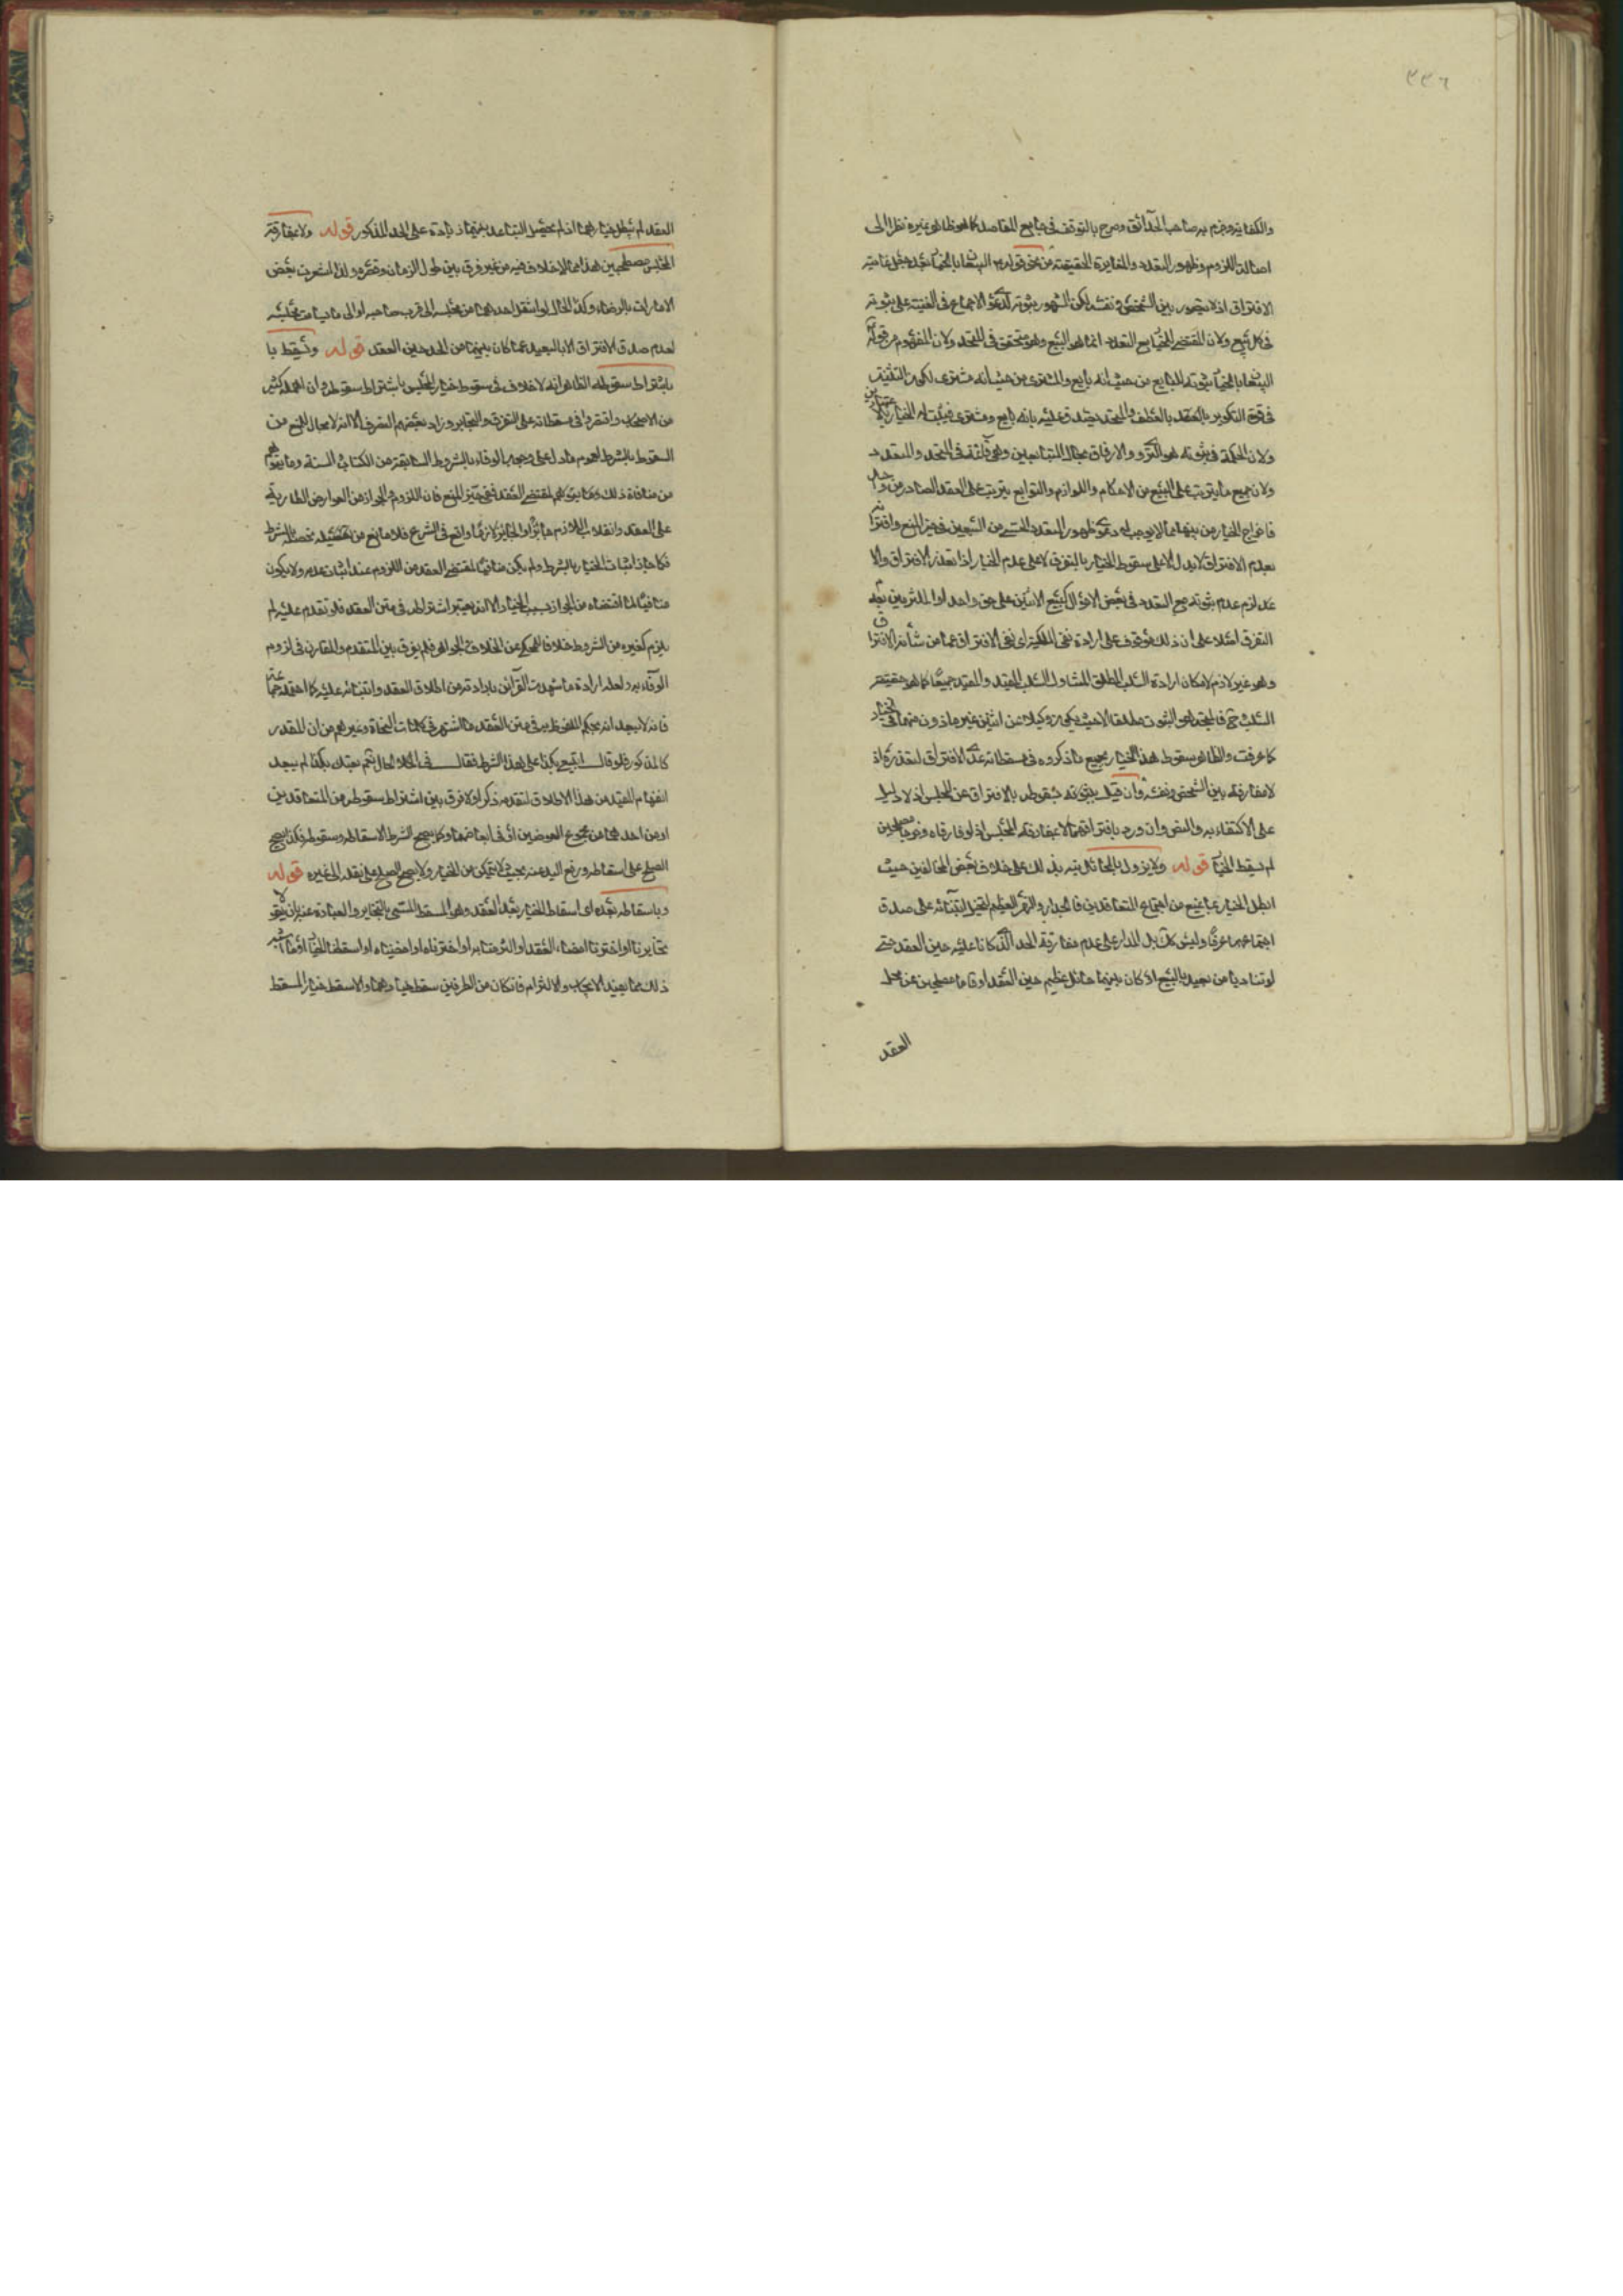 ٢٢٦
والكفاية وجزم به صاحب الحدائق وصرح بالتوقف في جامع المقاصد كما هو ظاهر غيره نظرا الى
اصالة اللزوم وظهور التعدد والمغايرة الحقيقية من نحو قوله البيعان بالخيار بعد جعل غايته
الافتراق اذ لا يتصور بين الشخص ونفسه لكن المشهور ثبوته لدعوى الاجماع في الغنية على ثبوته
في كل بيع ولان المقتضي للخيار مع التعدد انما هو البيع وهو متحقق في المتحد ولان المفهوم من قوله
البيعان بالخيار ثبوته للبايع من حيث انه بايع والمشتري من حيث انه مشتري لكون التثنية
في قوة التكرير بالعطف والمتحد يصدق عليه بانه بايع ومشتري فيثبت له الخيار بالاعتبارين
ولان الحكمة في ثبوته هو التروي والارفاق بحال المتبايعين وهي قائمة في المتحد والمتعدد
ولان جميع ما يترتب على البيع من الاحكام واللوازم والتوابع يترتب على العقد الصادر من واحد
فاخراج الخيار من بينها مما لا يوجب له ودعوى ظهور التعدد الحسي من البيعين في حيز المنع وافتراقه
بعدم الافتراق لا يدل الا على سقوط الخيار بالتفرق لا على عدم الخيار اذا تعذر الافتراق والا
لزم عدم ثبوته مع التعدد في بعض الاحوال كبيع الاثنين على حق واحد او الملتزمين بعد
التفرق على ان ذلك موقوف على ارادة نفي الملكية اي نفي الافتراق عما من شأنه الافتراق
وهو غير لازم لامكان ارادة السلب المطلق المتناول للسلب المقيد والمقيد جميعا كما هو حقيقة
السلب فالمتجه هو الثبوت مطلقا الا حيث يكون وكيلا عن اثنين غير ماذون منهما في الخيار
كما عرفت والظاهر سقوط هذا الخيار بجميع ما ذكروه في مسقطاته عدا الافتراق لتعذره اذ
لا مفارقة بين الشخص ونفسه وان قيل بثبوته سقوطه بالافتراق عن المجلس اذ لا دليل
على الاكتفاء به والنص وان ورد بافتراقهما لا بمفارقة المجلس اذ لو فارقاه مصطحبين
لم يسقط الخيار قوله ولا يزول بالحائل نبه بذلك على خلاف بعض المخالفين حيث
ابطل الخيار بما يمنع من اجتماع المتعاقدين كالجدار والنهر العظيم لتخيل ابتنائه على صدق
اجتماعهما عرفا وليس كذلك بل المدار على عدم مفارقة الحد الذي كانا عليه حين العقد حتى
لو تناديا من بعيد بالبيع او كان بينهما حائل عظيم حين العقد او قاما مصطحبين عن محل
العقد
العقد لم يبطل خيارهما اذا لم يحصل التباعد بينهما زيادة على الحد المذكور قوله ولا بمفارقة
المجلس مصطحبين هذا مما لا خلاف فيه من غير فرق بين طول الزمان وقصره ولو اشعرت بعض
الامارات بالرضاء وكذا الحال لو انتقل احدهما من مجلسه الى قرب صاحبه او الى ما يسامت مجلسه
لعدم صدق الافتراق الا بالبعيد عما كان بينهما من الحد حين العقد قوله ويسقط با
باشتراط سقوطه الظاهر انه لا خلاف في سقوط خيار المجلس باشتراط سقوطه وان اهمله كثير
من الاصحاب واقتصروا في مسقطاته على التفرق والتخاير وزاد بعضهم التصرف الا انه لا مجال للمنع من
السقوط بالشرط لعموم ما دل على وجوب الوفاء بالشروط السابقة من الكتاب والسنة وما يتوهم
من منافاة ذلك وما يتوهم لمقتضي العقد ففي حيز المنع فان اللزوم والجواز من العوارض الطارية
على العقد وانقلاب اللازم جائزا والجائز لازما واقع في الشرع فلا مانع من تحصيله بالشرط
فكما جاز اثبات الخيار بالشرط ولم يكن منافيا لمقتضى العقد من اللزوم عند اثبات عدمه ولا يكون
منافيا لما اقتضاه من الجواز بسبب الخيار الا انه يعتبر اشتراطه في متن العقد فلو تقدم عليه لم
يلزم كغيره من الشروط خلافا للمحكي عن الخلاف والجواهر فلم يفرق بين المتقدم والمقارن في لزوم
الوفاء به ولعله ارادة ما شهدت القرائن بارادته من اطلاق العقد وابتنائه عليه كما احتمله جماعة
فانه لا يبعد انه بحكم الملفوظ به في متن العقد ما اشتهر في كلمات النحاة وغيرهم من ان المقدر
كالمذكور فلو قال ابيع بكذا على هذا الشرط فقال في الحال ثم بعتك بكذا لم يبعد
انفهام المقيد من هذا الاطلاق لتقدم ذكره ولا فرق بين اشتراط سقوطه من المتعاقدين
او من احدهما من مجموع العوضين او في ابعاضهما وكما يصح الشرط لاسقاطه وسقوطه فكذا يصح
الصلح على اسقاطه ورفع اليد عنه بحيث لا يتمكن من الخيار ولا يصح الصلح على نقله الى غيره قوله
وباسقاطه بعده اي اسقاط الخيار بعد العقد وهو المسقط المسمى بالتخاير والعبارة عنه بان يقولا
تخايرنا او اخترنا امضاء العقد او التزمنا به او اخترناه او امضيناه او اسقطنا الخيار او ما اشبه
ذلك مما يفيد الايجاب والالتزام فان كان من الطرفين سقط خيارهما والا سقط خيار المسقط